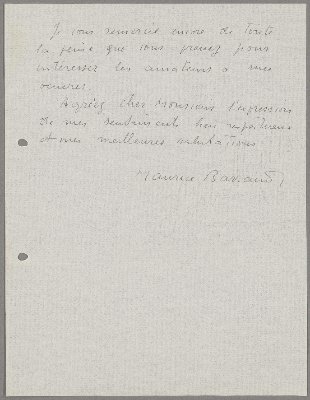 Je vous remercie encore de toute
la peine que vous prenez pour
intéresser les amateurs à mes
oeuvres.
Agréez cher Monsieur l'expression
de mes sentiments bien
et mes meilleures salutations
Maurice Barraud